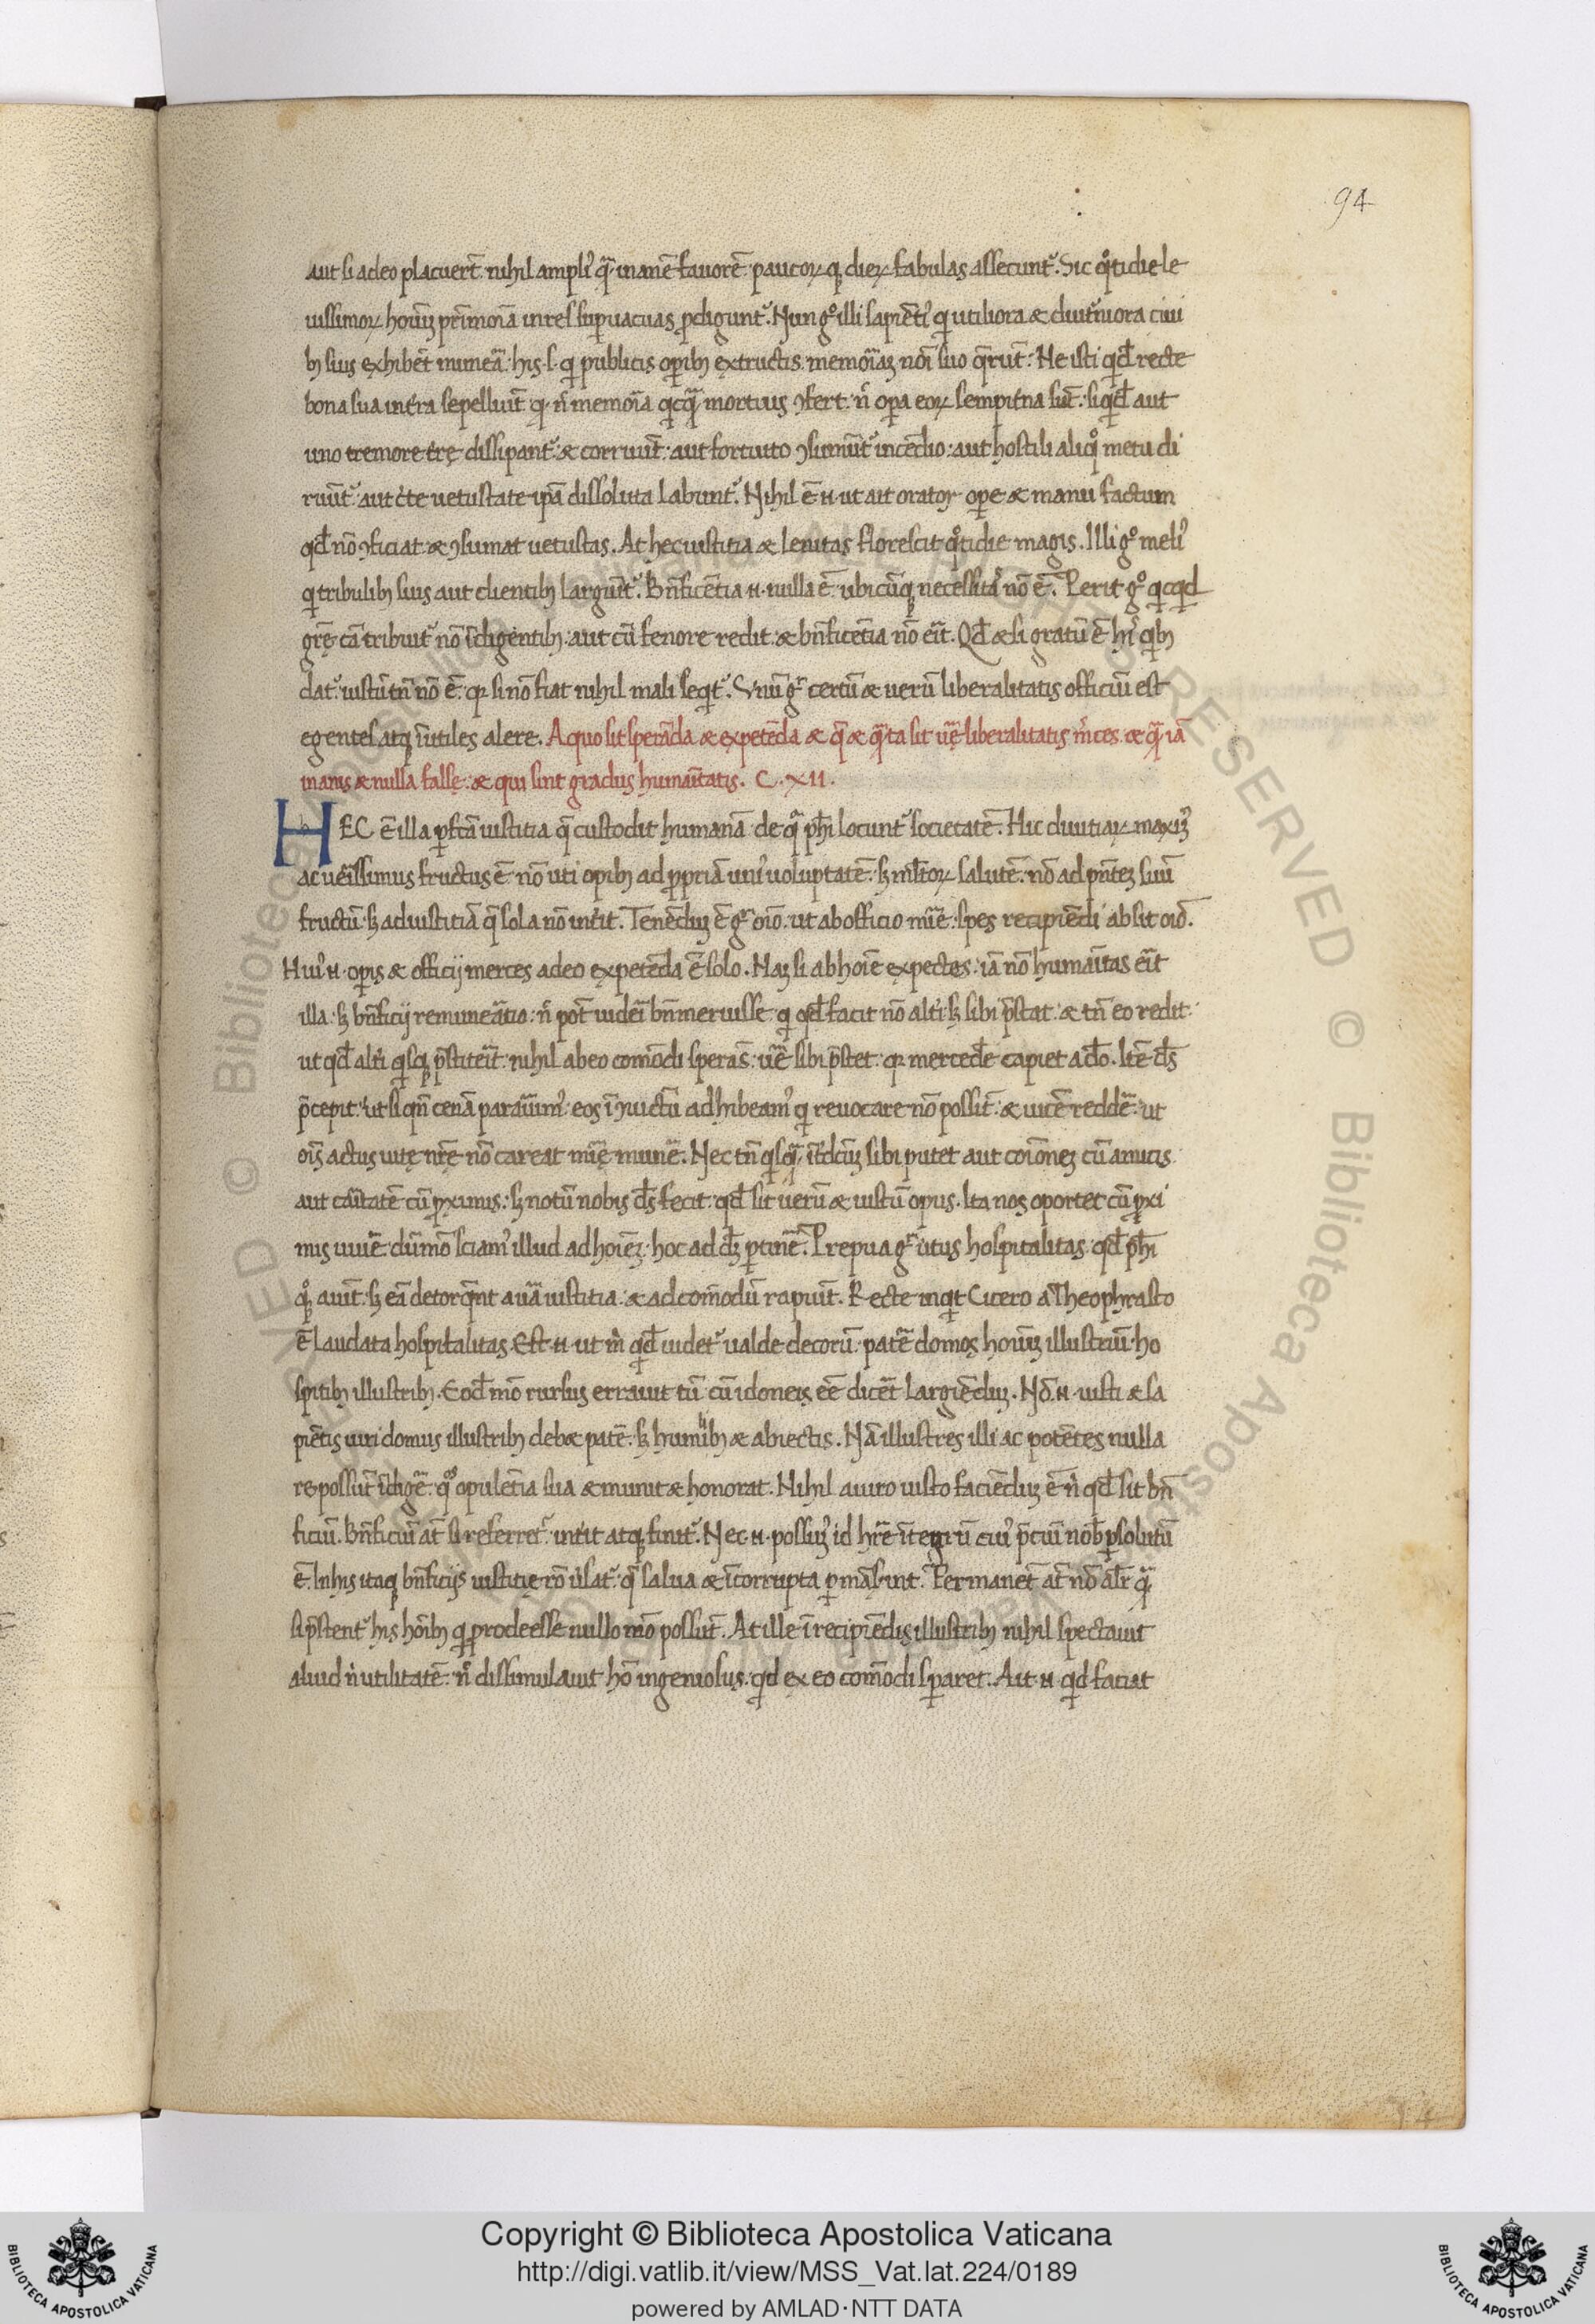 94
aut si adeo placuert̄. nihil ampliꝰ q̃ inanē fauorē. paucoꝝ q; dieꝝ fabulas assecunt᷒. Sic qͦtidie le
uissimoꝝ hoīuʒ pr̄imoīa in res supuacuas ꝓdigunt᷒. Nun gͦ illi sapiētiꝰ q utiliora & diut᷒niora ciui
bꝫ suis exhibēt munera. his .s. q publicis opibꝫ extructis memoriaʒ nōi suo q̄rūt. Ne isti qd̄ recte
bona sua in t̄ra sepeliūt qꝫ n̄ memoīa qcq̃ mortuis ꝯfert. n̄ opa eoꝝ sempit̄na sūt. siqd̄ aut
uno tremore tr̄ę dissipant᷒ & corruūt. aut fortuito ꝯsumūt᷒ incēdio. aut hostili aliqͦ metu di
ruūt᷒ aut c̄te uetustate ip̄a dissoluta labunt᷒. Nihil ē .n. ut ait orator ope & manu factum
qd̄ nō ꝯficiat & ꝯsumat uetustas. At hec iustitia & lenitas florescit qͦtidie magis. Illi gͦ meliꝰ
q tribulibꝫ suis aut clientibꝫ largiūt᷒. Bn̄ficētia .n. nulla ē ubicūqꝫ necessitas nō ē. Perit gͦ qcqd
grē cā tribuit᷒ nō īdigentibꝫ. aut cū fenore redit. & bn̄ficētia nō erit. Qd̄ & si gratū ē his qbꝫ
dat᷒. iustū tn̄ nō ē. qꝛ si nō fiat nihil mali seqt᷒. Vnū gͦ certū & uerū liberalitatis officiū est
egentes atqꝫ īutiles alere. A quo sit sperāda & expetēda & q̄ & q̃ta sit uerę liberalitatis m̄ces. & q̃ iā
inanis & nulla falsę. & qui sint gradus humaītatis. C. XII.
HEC ē illa ꝑfc̄a iustitia q̄ custodit humanā de q̃ ph̄i locunt᷒ societatē. Hic diuitiaꝝ maxīꝰ
ac uerissimus fructus ē. nō uti opibꝫ ad ꝓpriā uniꝰ uoluptatē. sꝫ ml̄toꝝ salutē. nō ad pn̄teʒ suū
fructū. sꝫ ad iustitiā q̄ sola nō int̄it. Tenēduʒ ē gͦ oīo. ut ab officio mīe. spes recipiēdi absit oīo.
Huiꝰ .n. opis & officij merces a deo expetēda ē solo. Naʒ si ab hoīe expectes. iā nō humaītas erit
illa. sꝫ bn̄ficij remuneratio. n̄ pōt uideri bn̄ meruisse q qd̄ facit nō alt̄i. sꝫ sibi p̄stat. & tn̄ eo redit.
ut qd̄ alt̄i qsqꝫ p̄stiterit. nihil ab eo comōdi sperās. uere sibi p̄stet. qꝛ mercedē capiet a dō. Itē ds̄
p̄cepit. ut si qn̄ cenā parauimꝰ. eos ī ꝯuictū adhibeamꝰ q reuocare nō possūt. & uicē reddere. ut
oīs actus uitę nr̄ę nō careat mīę munere. Nec tn̄ qsq̃ īt̄dc̄m sibi putet aut coīoneʒ cū amicis
aut caritatē cū ꝓximis. sꝫ notū nobis ds̄ fecit. qd̄ sit uerū & iustū opus. Ita nos oportet cū ꝓxi
mis uiuere dūmō sciamꝰ illud ad hoīeʒ. hoc ad dꝫ ptinere. Precipua gͦ uirtus hospitalitas. qd̄ ph̄i
qͦqꝫ aiūt. sꝫ eā detorq̄nt a uera iustitia. & ad comōdū rapiūt. Recte inqt Cicero a Theophrasto
ē laudata hospitalitas. Est .n. ut m̄ qd̄ uidet᷒ ualde decorū. patere domos hoīuʒ illustriū. ho
spitibꝫ illustribꝫ. Eod̄ mō rursus errauit tū cū idoneis eē dicēt largiēduʒ. Nō .n. iusti & sa
piētis uiri domus illustribꝫ debet patere. sꝫ humilibꝫ & abiectis. Nā illustres illi ac potētes nulla
re possūt īdigere. qͦs opulētia sua & munit & honorat. Nihil a uiro iusto faciēduʒ ē n̄ qd̄ sit bn̄
ficiū. Bn̄ficiū at̄ si referret᷒. int̄it atqꝫ finit᷒. Nec .n. possumꝰ id hr̄e ītegrū cuiꝰ p̄ciū nob̄ ꝑsolutū
ē. In his itaqꝫ bn̄ficijs iustitię rō uersat᷒. q̄ salua & īcorrupta ꝑmāserint. Permanēt at̄ nō alr̄ q̃
si p̄stent᷒ his hoībꝫ q prodeesse nullo mō possūt. At ille ī recipiēdis illustribꝫ nihil spectauit
aliud n̄ utilitatē. n̄ dissimulauit hō ingeniosus. qd ex eo comōdi speraret. Ait .n. qd faciat
Copyright © Biblioteca Apostolica Vaticana
http://digi.vatlib.it/view/MSS_Vat.lat.224/0189
powered by AMLAD·NTT DATA
BIBLIOTECA APOSTOLICA VATICANA
BIBLIOTECA APOSTOLICA VATICANA